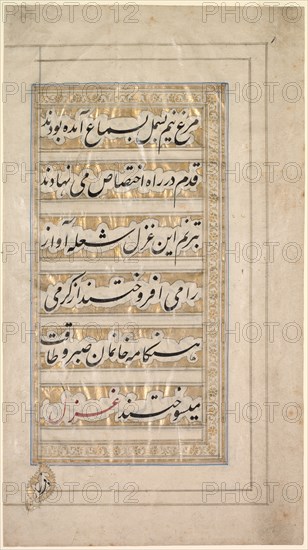 مرغ نیم بسمل بسماع آمده بودند
قدم در راه اختصاص می نهادند
بترنم این غزل شعله آواز
را می افروختند از گرمی
هنگامه خانمان صبر و طاقت
میسوختند غزل
PHOTO12